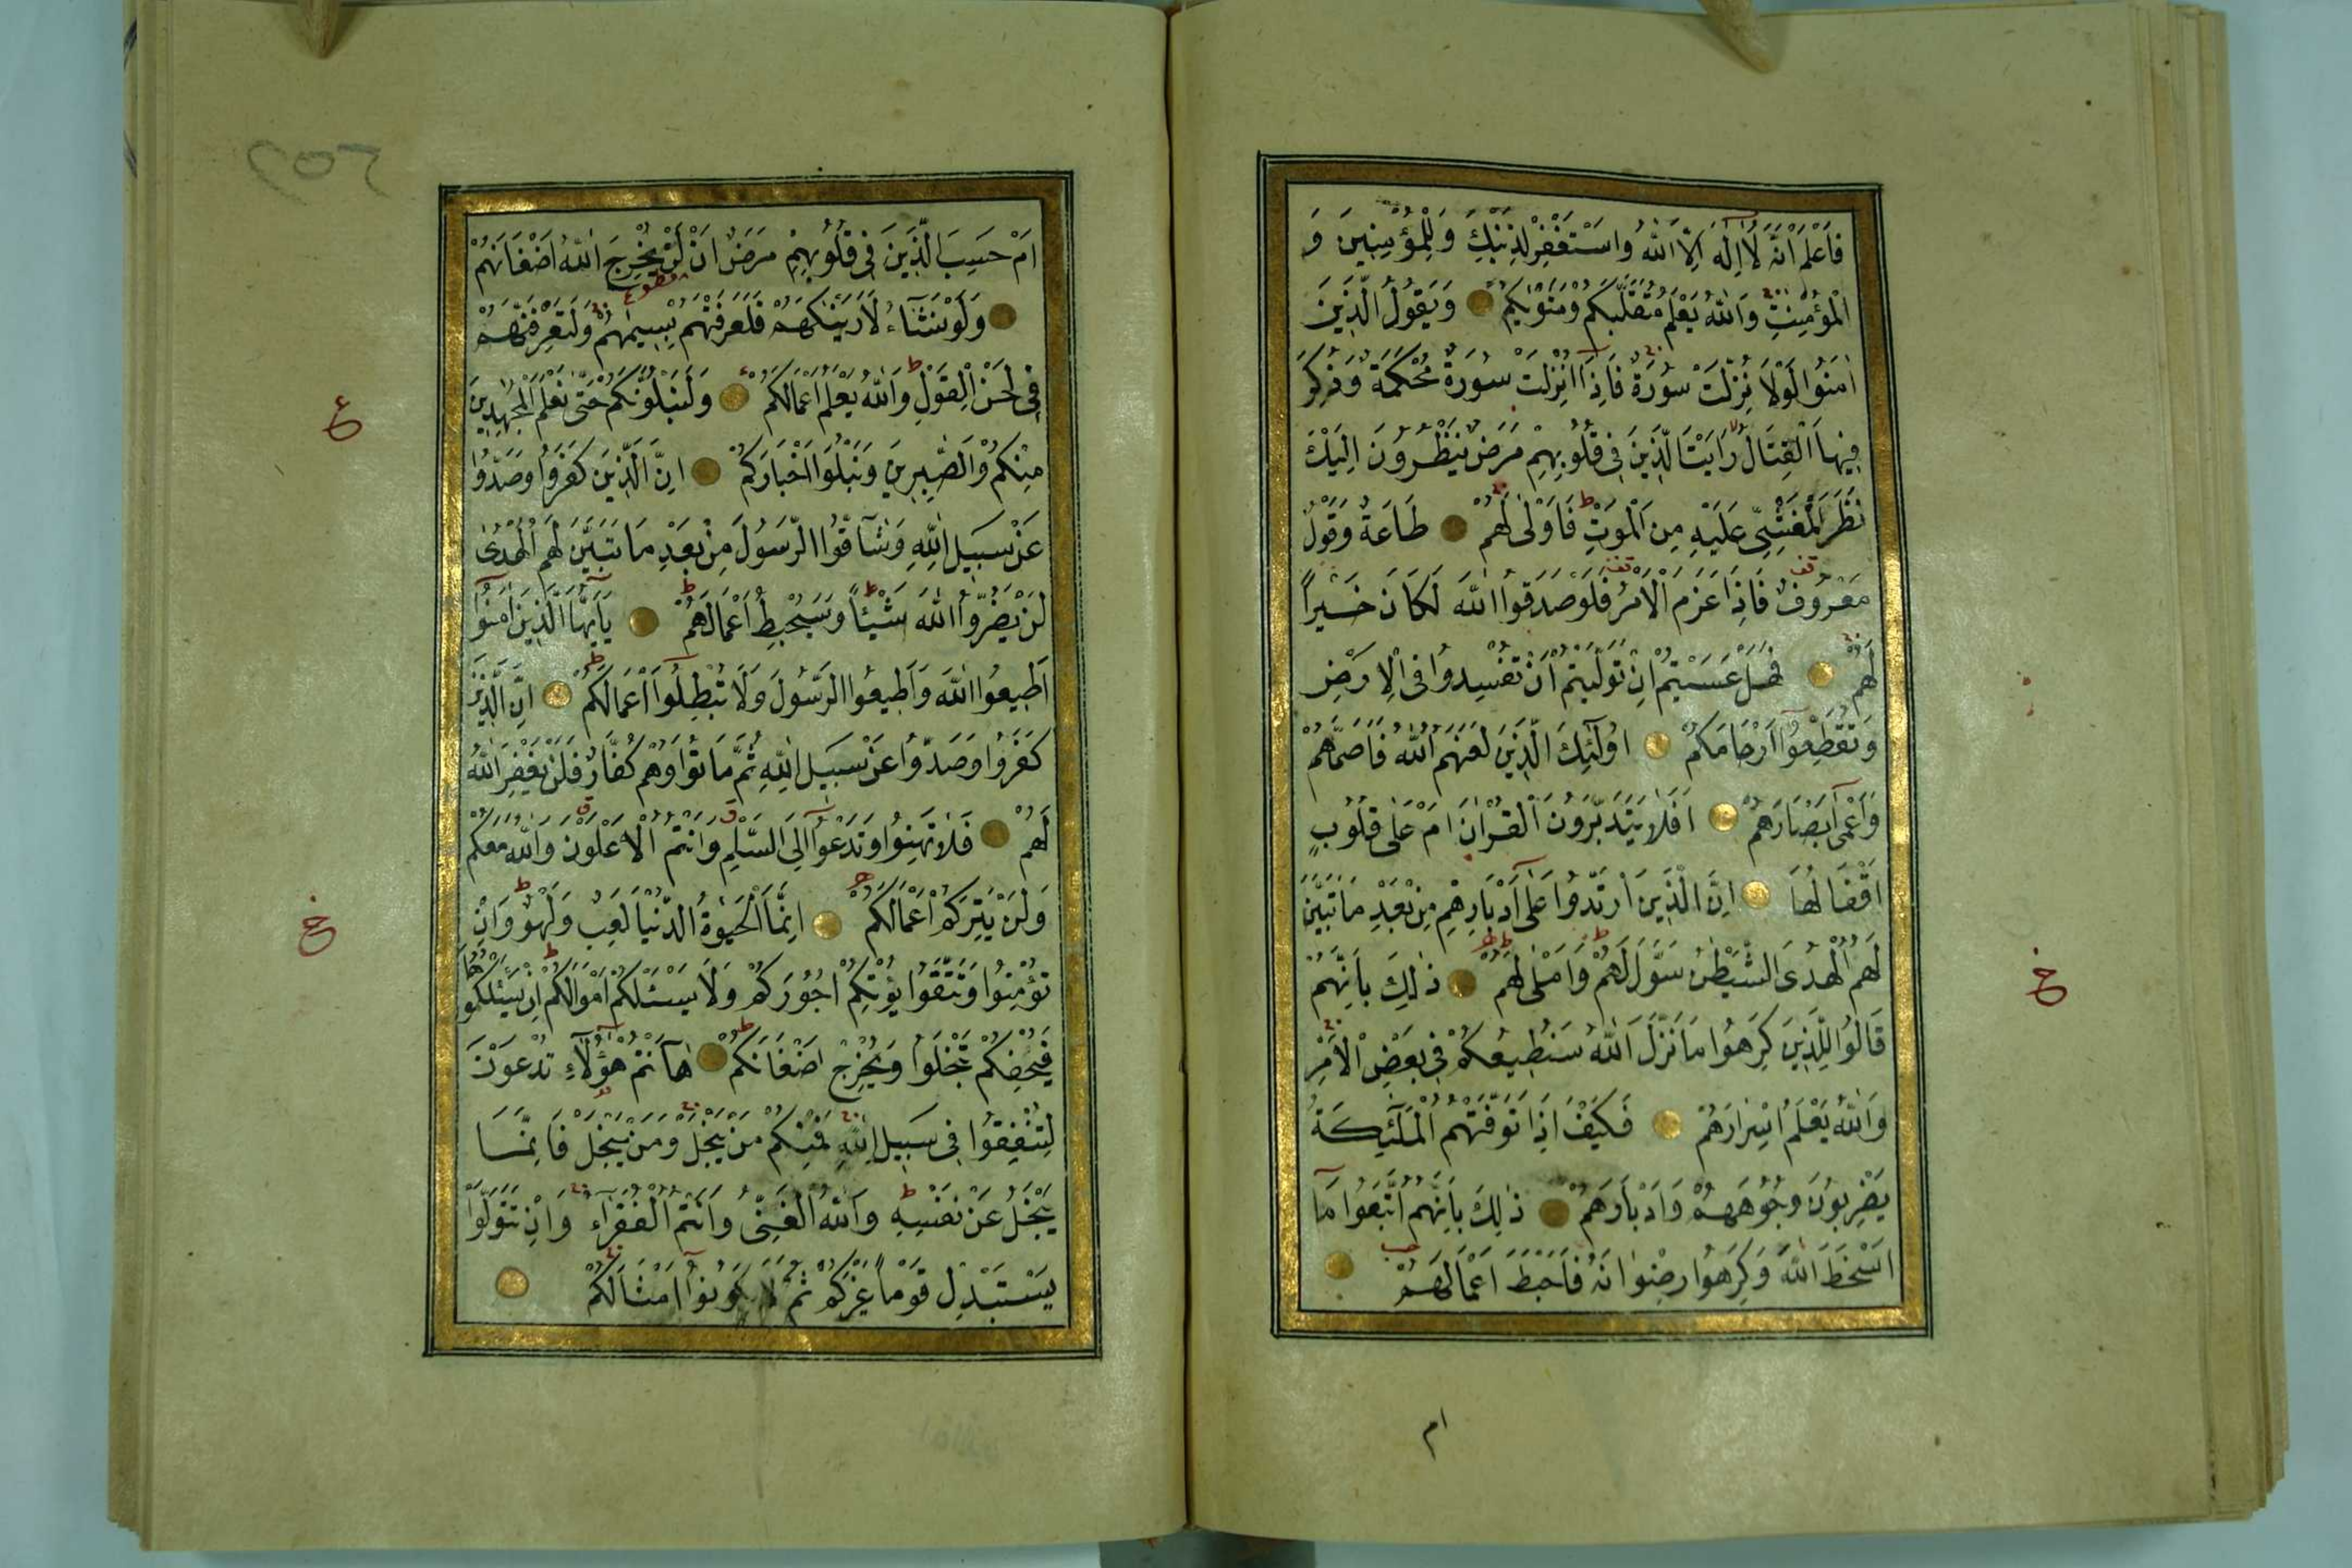 فَاعْلَمْ اَنَّهُ لَٓا اِلٰهَ اِلَّا اللّٰهُ وَاسْتَغْفِرْ لِذَنْبِكَ وَلِلْمُؤْمِنٖينَ وَ
الْمُؤْمِنَاتِ وَاللّٰهُ يَعْلَمُ مُتَقَلَّبَكُمْ وَمَثْوٰيكُمْ وَيَقُولُ الَّذٖينَ
اٰمَنُوا لَوْلَا نُزِّلَتْ سُورَةٌ فَاِذَٓا اُنْزِلَتْ سُورَةٌ مُحْكَمَةٌ وَذُكِرَ
فٖيهَا الْقِتَالُ رَاَيْتَ الَّذٖينَ فٖى قُلُوبِهِمْ مَرَضٌ يَنْظُرُونَ اِلَيْكَ
نَظَرَ الْمَغْشِىِّ عَلَيْهِ مِنَ الْمَوْتِ فَاَوْلٰى لَهُمْ طَاعَةٌ وَقَوْلٌ
مَعْرُوفٌ فَاِذَا عَزَمَ الْاَمْرُ فَلَوْ صَدَقُوا اللّٰهَ لَكَانَ خَيْرًا
لَهُمْ فَهَلْ عَسَيْتُمْ اِنْ تَوَلَّيْتُمْ اَنْ تُفْسِدُوا فِى الْاَرْضِ
وَتُقَطِّعُٓوا اَرْحَامَكُمْ اُولٰٓئِكَ الَّذٖينَ لَعَنَهُمُ اللّٰهُ فَاَصَمَّهُمْ
وَاَعْمٰٓى اَبْصَارَهُمْ اَفَلَا يَتَدَبَّرُونَ الْقُرْاٰنَ اَمْ عَلٰى قُلُوبٍ
اَقْفَالُهَا اِنَّ الَّذٖينَ ارْتَدُّوا عَلٰٓى اَدْبَارِهِمْ مِنْ بَعْدِ مَا تَبَيَّنَ
لَهُمُ الْهُدَى الشَّيْطٰنُ سَوَّلَ لَهُمْ وَاَمْلٰى لَهُمْ ذٰلِكَ بِاَنَّهُمْ
قَالُوا لِلَّذٖينَ كَرِهُوا مَا نَزَّلَ اللّٰهُ سَنُطٖيعُكُمْ فٖى بَعْضِ الْاَمْرِ
وَاللّٰهُ يَعْلَمُ اِسْرَارَهُمْ فَكَيْفَ اِذَا تَوَفَّتْهُمُ الْمَلٰٓئِكَةُ
يَضْرِبُونَ وُجُوهَهُمْ وَاَدْبَارَهُمْ ذٰلِكَ بِاَنَّهُمُ اتَّبَعُوا مَٓا
اَسْخَطَ اللّٰهَ وَكَرِهُوا رِضْوَانَهُ فَاَحْبَطَ اَعْمَالَهُمْ
ام
اَمْ حَسِبَ الَّذٖينَ فٖى قُلُوبِهِمْ مَرَضٌ اَنْ لَنْ يُخْرِجَ اللّٰهُ اَضْغَانَهُمْ
وَلَوْ نَشَٓاءُ لَاَرَيْنٰكَهُمْ فَلَعَرَفْتَهُمْ بِسٖيمٰيهُمْ وَلَتَعْرِفَنَّهُمْ
فٖى لَحْنِ الْقَوْلِ وَاللّٰهُ يَعْلَمُ اَعْمَالَكُمْ وَلَنَبْلُوَنَّكُمْ حَتّٰى نَعْلَمَ الْمُجٰهِدٖينَ
مِنْكُمْ وَالصّٰبِرٖينَ وَنَبْلُوَا اَخْبَارَكُمْ اِنَّ الَّذٖينَ كَفَرُوا وَصَدُّوا
عَنْ سَبٖيلِ اللّٰهِ وَشَٓاقُّوا الرَّسُولَ مِنْ بَعْدِ مَا تَبَيَّنَ لَهُمُ الْهُدٰى
لَنْ يَضُرُّوا اللّٰهَ شَيْـًٔا وَسَيُحْبِطُ اَعْمَالَهُمْ يَٓا اَيُّهَا الَّذٖينَ اٰمَنُٓوا
اَطٖيعُوا اللّٰهَ وَاَطٖيعُوا الرَّسُولَ وَلَا تُبْطِلُٓوا اَعْمَالَكُمْ اِنَّ الَّذٖينَ
كَفَرُوا وَصَدُّوا عَنْ سَبٖيلِ اللّٰهِ ثُمَّ مَاتُوا وَهُمْ كُفَّارٌ فَلَنْ يَغْفِرَ اللّٰهُ
لَهُمْ فَلَا تَهِنُوا وَتَدْعُٓوا اِلَى السَّلْمِ وَاَنْتُمُ الْاَعْلَوْنَ وَاللّٰهُ مَعَكُمْ
وَلَنْ يَتِرَكُمْ اَعْمَالَكُمْ اِنَّمَا الْحَيٰوةُ الدُّنْيَا لَعِبٌ وَلَهْوٌ وَاِنْ
تُؤْمِنُوا وَتَتَّقُوا يُؤْتِكُمْ اُجُورَكُمْ وَلَا يَسْـَٔلْكُمْ اَمْوَالَكُمْ اِنْ يَسْـَٔلْكُمُوهَا
فَيُحْفِكُمْ تَبْخَلُوا وَيُخْرِجْ اَضْغَانَكُمْ هَٓا اَنْتُمْ هٰٓؤُلَٓاءِ تُدْعَوْنَ
لِتُنْفِقُوا فٖى سَبٖيلِ اللّٰهِ فَمِنْكُمْ مَنْ يَبْخَلُ وَمَنْ يَبْخَلْ فَاِنَّمَا
يَبْخَلُ عَنْ نَفْسِهٖ وَاللّٰهُ الْغَنِىُّ وَاَنْتُمُ الْفُقَرَٓاءُ وَاِنْ تَتَوَلَّوْا
يَسْتَبْدِلْ قَوْمًا غَيْرَكُمْ ثُمَّ لَا يَكُونُٓوا اَمْثَالَكُمْ